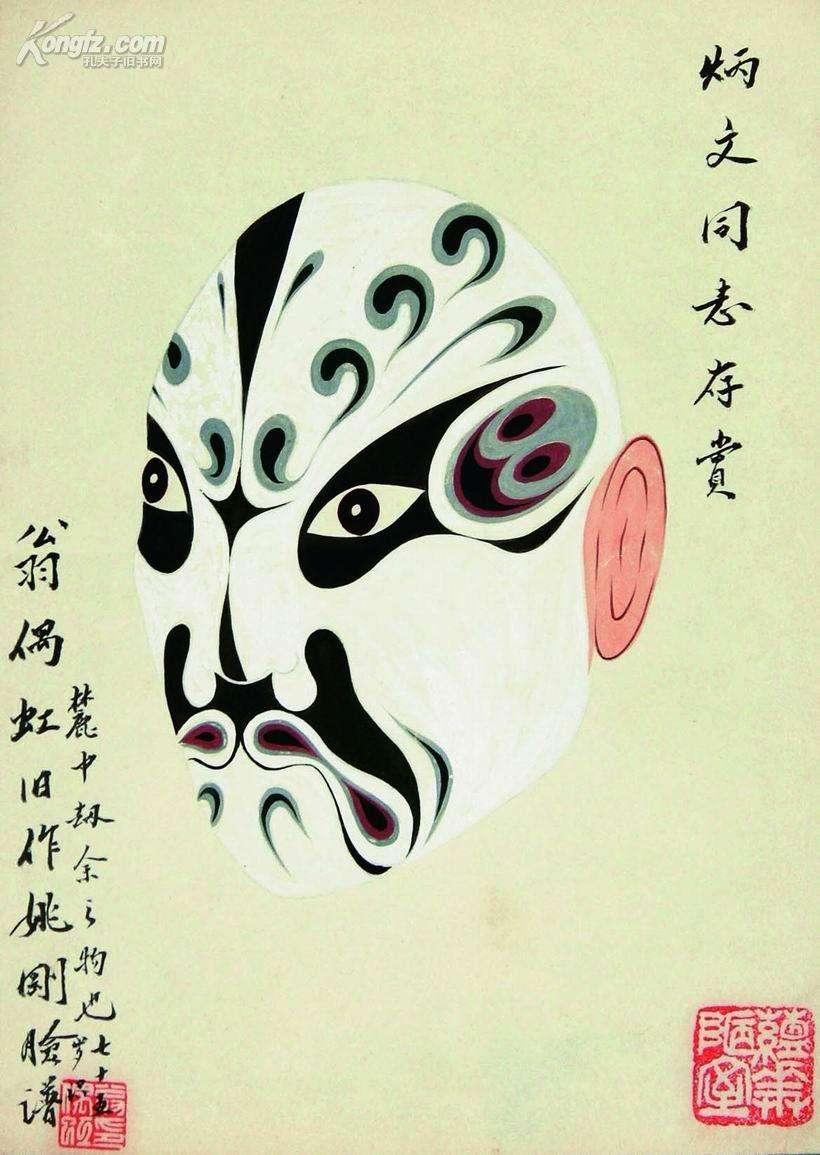 Kongfz.com
孔夫子旧书网
炳文同志存赏
翁偶虹旧作姚刚脸谱
麓中劫余之物也七十五岁识